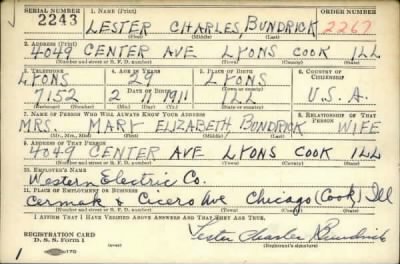 SERIAL NUMBER 1. NAME (Print) ORDER NUMBER
2243 LESTER CHARLES BUNDRICK 2267
(First) (Middle) (Last)
2. ADDRESS (Print)
4049 CENTER AVE LYONS COOK ILL
(Number and street or R. F. D. number) (Town) (County) (State)
3. TELEPHONE 4. AGE IN YEARS 5. PLACE OF BIRTH 6. COUNTRY OF CITIZENSHIP
LYONS 29 LYONS
7152 2 7 1911 ILL U.S.A.
7. NAME OF PERSON WHO WILL ALWAYS KNOW YOUR ADDRESS 8. RELATIONSHIP OF THAT PERSON
MRS. MARY ELIZABETH BUNDRICK WIFE
(Mr., Mrs., Miss) (First) (Middle) (Last)
9. ADDRESS OF THAT PERSON
4049 CENTER AVE LYONS COOK ILL
(Number and street or R. F. D. number) (Town) (County) (State)
10. EMPLOYER'S NAME
Western Electric Co.
11. PLACE OF EMPLOYMENT OR BUSINESS
Cermak & Cicero Ave Chicago (Cook) Ill
(Number and street or R. F. D. number) (Town) (County) (State)
I AFFIRM THAT I HAVE VERIFIED ABOVE ANSWERS AND THAT THEY ARE TRUE.
REGISTRATION CARD
D. S. S. Form 1 Lester Charles Bundrick
(Registrant's signature)
1